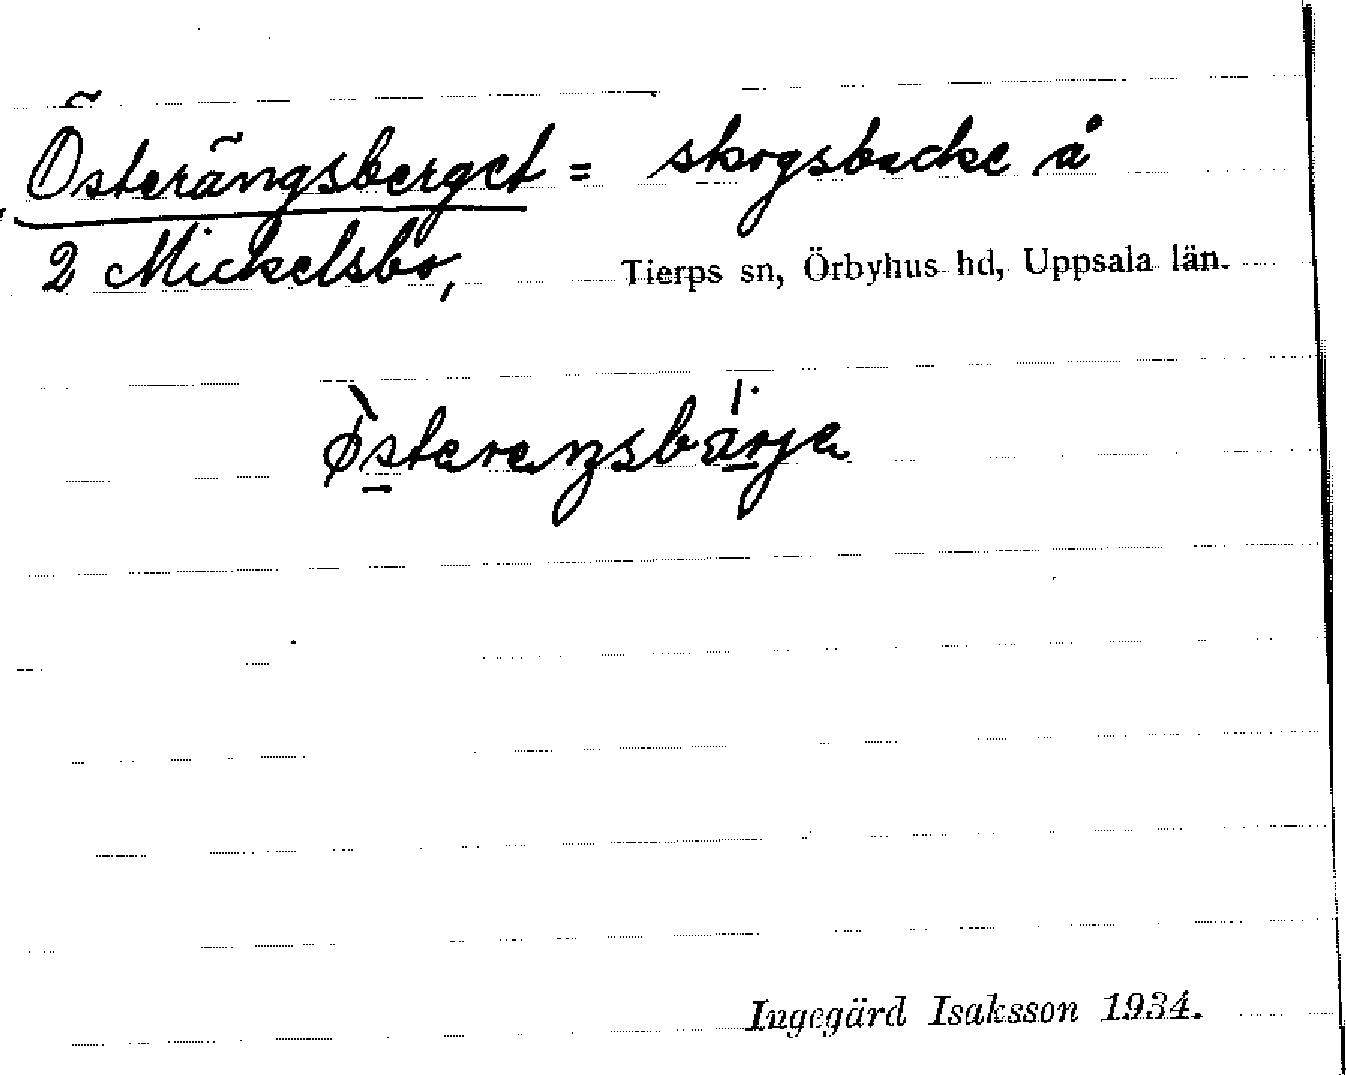 Österängsberget = skogsbacke å
2 Mickelsbo, Tierps sn, Örbyhus hd, Uppsala län.
Ingegärd Isaksson 1934.